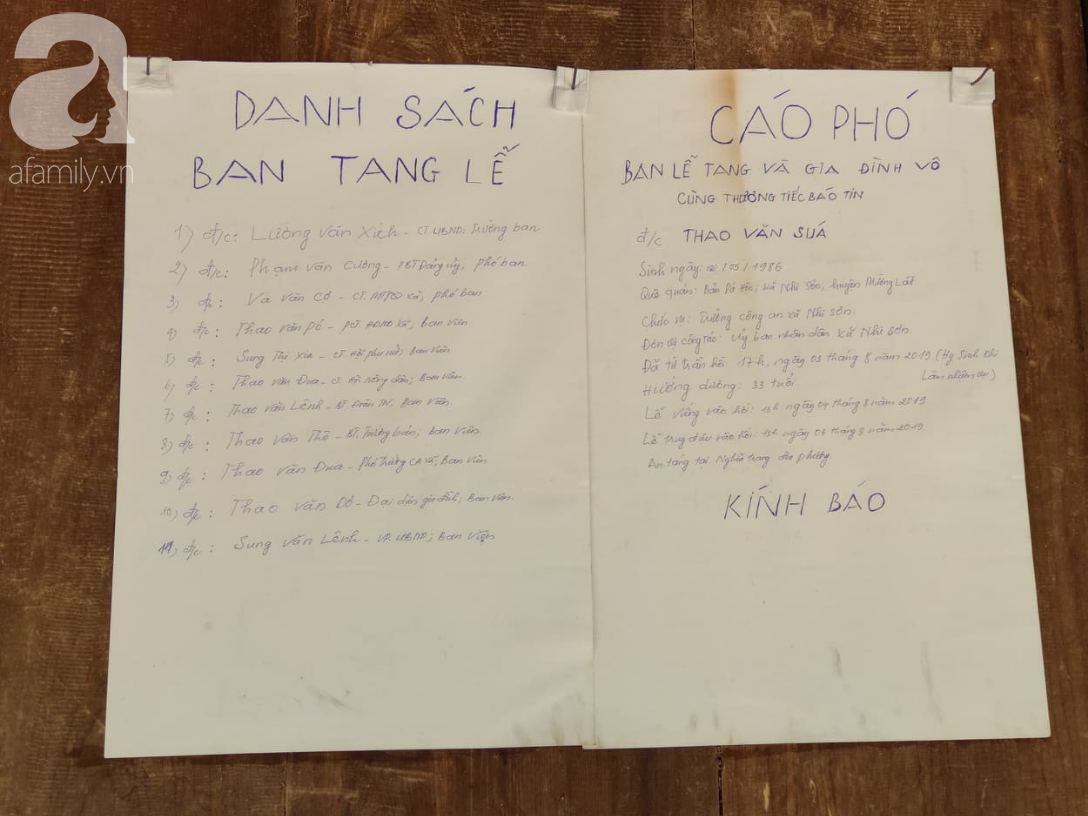 a
afamily.vn
DANH SÁCH
BAN TANG LỄ
1) đ/c: Lương Văn Xích - CT. UBND, Trưởng ban
2) đ/c: Phạm văn Cường - PBT Đảng ủy, phó ban
3) đ/c: Và Văn Cơ - CT. xã, phó ban
4) đ/c: Thao Văn Pó - PCT. HĐND xã, Ban viên
5) đ/c: Sung Thị Xia - CT. Hội phụ nữ, Ban viên
6) đ/c: Thao văn Dua - CT. Hội nông dân, Ban viên
7) đ/c: Thao văn Lênh - BT. Đoàn TN, Ban viên
8) đ/c: Thao Văn Thê - BT, Trưởng bản, Ban viên
9) đ/c: Thao văn Dua - Phó trưởng CA xã, Ban viên
10) đ/c: Thao văn - Đại diện gia đình, Ban viên
11) đ/c: Sung văn Lênh - Ban viên
CÁO PHÓ
BAN LỄ TANG VÀ GIA ĐÌNH VÔ
CÙNG THƯƠNG TIẾC BÁO TIN
đ/c THAO VĂN SUÁ
Sinh ngày: /05/1986
Quê quán: Bản xã Nhi Sơn, huyện Mường Lát
Chức vụ: Trưởng công an xã Nhi Sơn
Đơn vị công tác: Ủy ban nhân dân xã Nhi Sơn
Đã từ trần hồi: 17h, ngày 03 tháng 8 năm 2019 (Hy sinh khi
làm nhiệm vụ)
Hưởng dương: 33 tuổi
Lễ viếng vào hồi: ngày 04 tháng 8 năm 2019
Lễ truy điệu vào hồi: ngày 06 tháng 8 năm 2019
An táng tại: Nghĩa trang địa phương
KÍNH BÁO